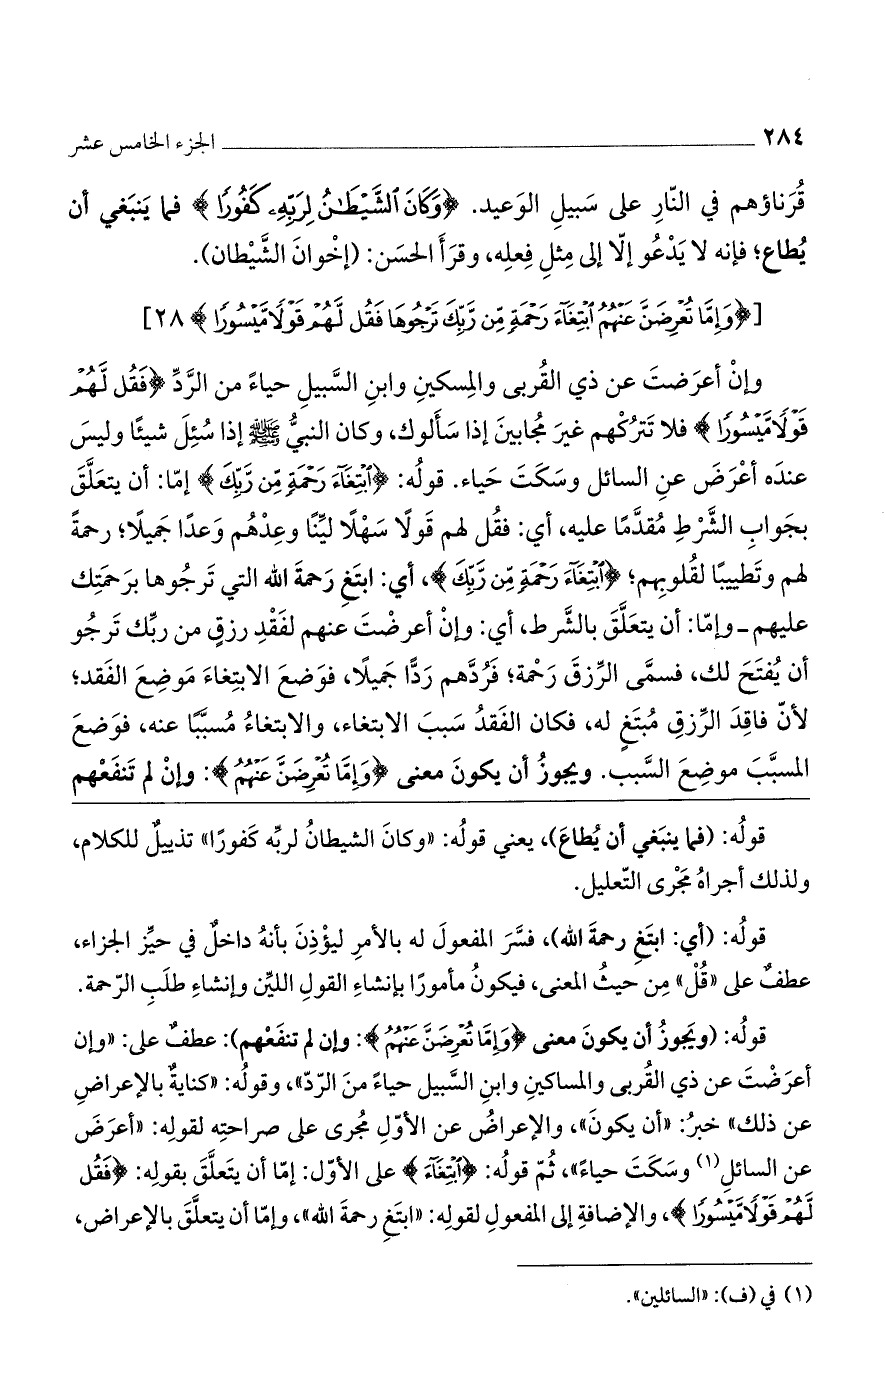 ٢٨٤ الجزء الخامس عشر
قُرَناؤهم في النّارِ على سَبيلِ الوَعيد. ﴿وَكَانَ ٱلشَّيْطَـٰنُ لِرَبِّهِۦ كَفُورًا﴾ فما يَنبَغي أن
يُطاع؛ فإنه لا يَدْعُو إلّا إلى مِثلِ فِعلِه، وقرَأَ الحسَن: (إخْوانَ الشَّيْطان).
[﴿وَإِمَّا تُعْرِضَنَّ عَنْهُمُ ٱبْتِغَآءَ رَحْمَةٍ مِّن رَّبِّكَ تَرْجُوهَا فَقُل لَّهُمْ قَوْلًا مَّيْسُورًا﴾ ٢٨]
وإنْ أعرَضتَ عن ذي القُربى والمِسكينِ وابنِ السَّبيلِ حياءً من الرَّدِّ ﴿فَقُل لَّهُمْ
قَوْلًا مَّيْسُورًا﴾ فلا تَترُكْهم غيرَ مُجابينَ إذا سَألوك، وكان النبيُّ ﷺ إذا سُئِلَ شيئًا وليسَ
عندَه أعْرَضَ عنِ السائل وسَكَتَ حَياء. قولُه: ﴿ٱبْتِغَآءَ رَحْمَةٍ مِّن رَّبِّكَ﴾ إمّا: أن يتعَلَّقَ
بجوابِ الشَّرْطِ مُقدَّمًا عليه، أي: فقُل لهم قَولًا سَهْلًا ليِّنًا وعِدْهُم وَعدًا جَميلًا؛ رحمةً
لهم وتَطييبًا لقُلوبِهم؛ ﴿ٱبْتِغَآءَ رَحْمَةٍ مِّن رَّبِّكَ﴾، أي: ابتَغِ رَحمةَ الله التي تَرجُوها برَحمَتِك
عليهم ـ وإمّا: أن يتعَلَّقَ بالشَّرط، أي: وإنْ أعرضْتَ عنهم لفَقْدِ رزقٍ من ربِّك تَرجُو
أن يُفتَحَ لك، فسمَّى الرِّزقَ رَحْمة؛ فَرُدَّهم رَدًّا جَميلًا، فوَضعَ الابتغاءَ مَوضِعَ الفَقد؛
لأنّ فاقِدَ الرِّزقِ مُبتَغٍ له، فكان الفَقدُ سَببَ الابتغاء، والابتغاءُ مُسبَّبًا عنه، فوَضعَ
المسبَّبَ موضِعَ السَّبب. ويجوزُ أن يكونَ معنى ﴿وَإِمَّا تُعْرِضَنَّ عَنْهُمُ﴾: وإنْ لم تَنفَعْهم
قولُه: (فما ينبَغي أن يُطاعَ)، يعني قولُه: «وكانَ الشيطانُ لربِّه كَفورًا» تذييلٌ للكلام،
ولذلك أجراهُ مَجْرى التّعليل.
قولُه: (أي: ابتَغِ رحمةَ الله)، فسَّرَ المفعولَ له بالأمرِ ليؤْذِنَ بأنهُ داخلٌ في حيِّز الجزاء،
عطفٌ على «قُلْ» مِن حيثُ المعنى، فيكونُ مأمورًا بإنشاءِ القولِ الليِّن وإنشاءِ طلَبِ الرّحمة.
قولُه: (ويَجوزُ أن يكونَ معنى ﴿وَإِمَّا تُعْرِضَنَّ عَنْهُمُ﴾: وإن لم تنفَعْهم): عطفٌ على: «وإن
أعرَضْتَ عن ذي القُربى والمساكينِ وابنِ السَّبيل حياءً منَ الرّدّ»، وقولُه: «كنايةٌ بالإعراضِ
عن ذلك» خبرُ: «أن يكونَ»، والإعراضُ عن الأوّلِ مُجرى على صراحتِه لقولِه: «أعرَضَ
عن السائلِ(١) وسَكَتَ حياءً»، ثُمّ قولُه: ﴿ٱبْتِغَآءَ﴾ على الأوّل: إمّا أن يتَعلَّقَ بقولِه: ﴿فَقُل
لَّهُمْ قَوْلًا مَّيْسُورًا﴾، والإضافةِ إلى المفعولِ لقولِه: «ابتَغِ رحمةَ الله»، وإمّا أن يتعلَّقَ بالإعراض،
(١) في (ف): «السائلين».